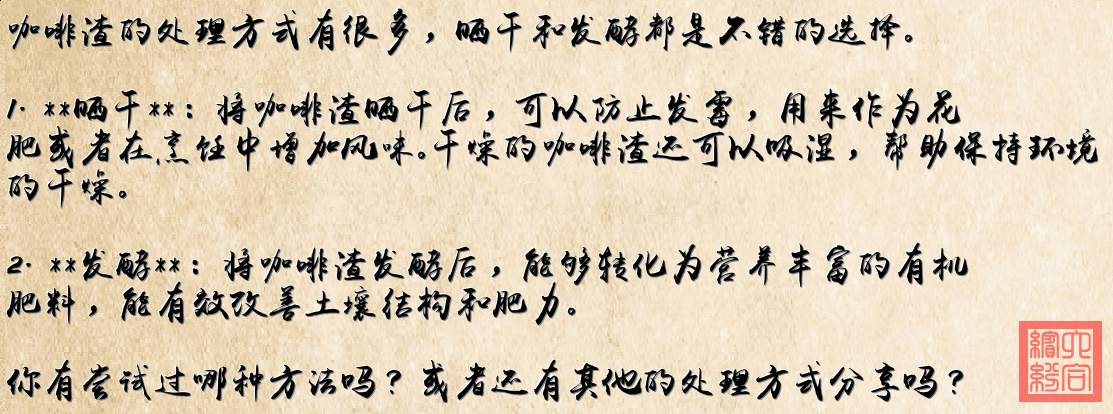 咖啡渣的处理方式有很多，晒干和发酵都是不错的选择。
1. **晒干**：将咖啡渣晒干后，可以防止发霉，用来作为花
肥或者在烹饪中增加风味。干燥的咖啡渣还可以吸湿，帮助保持环境
的干燥。
2. **发酵**：将咖啡渣发酵后，能够转化为营养丰富的有机
肥料，能有效改善土壤结构和肥力。
你有尝试过哪种方法吗？或者还有其他的处理方式分享吗？
六合
缤纷